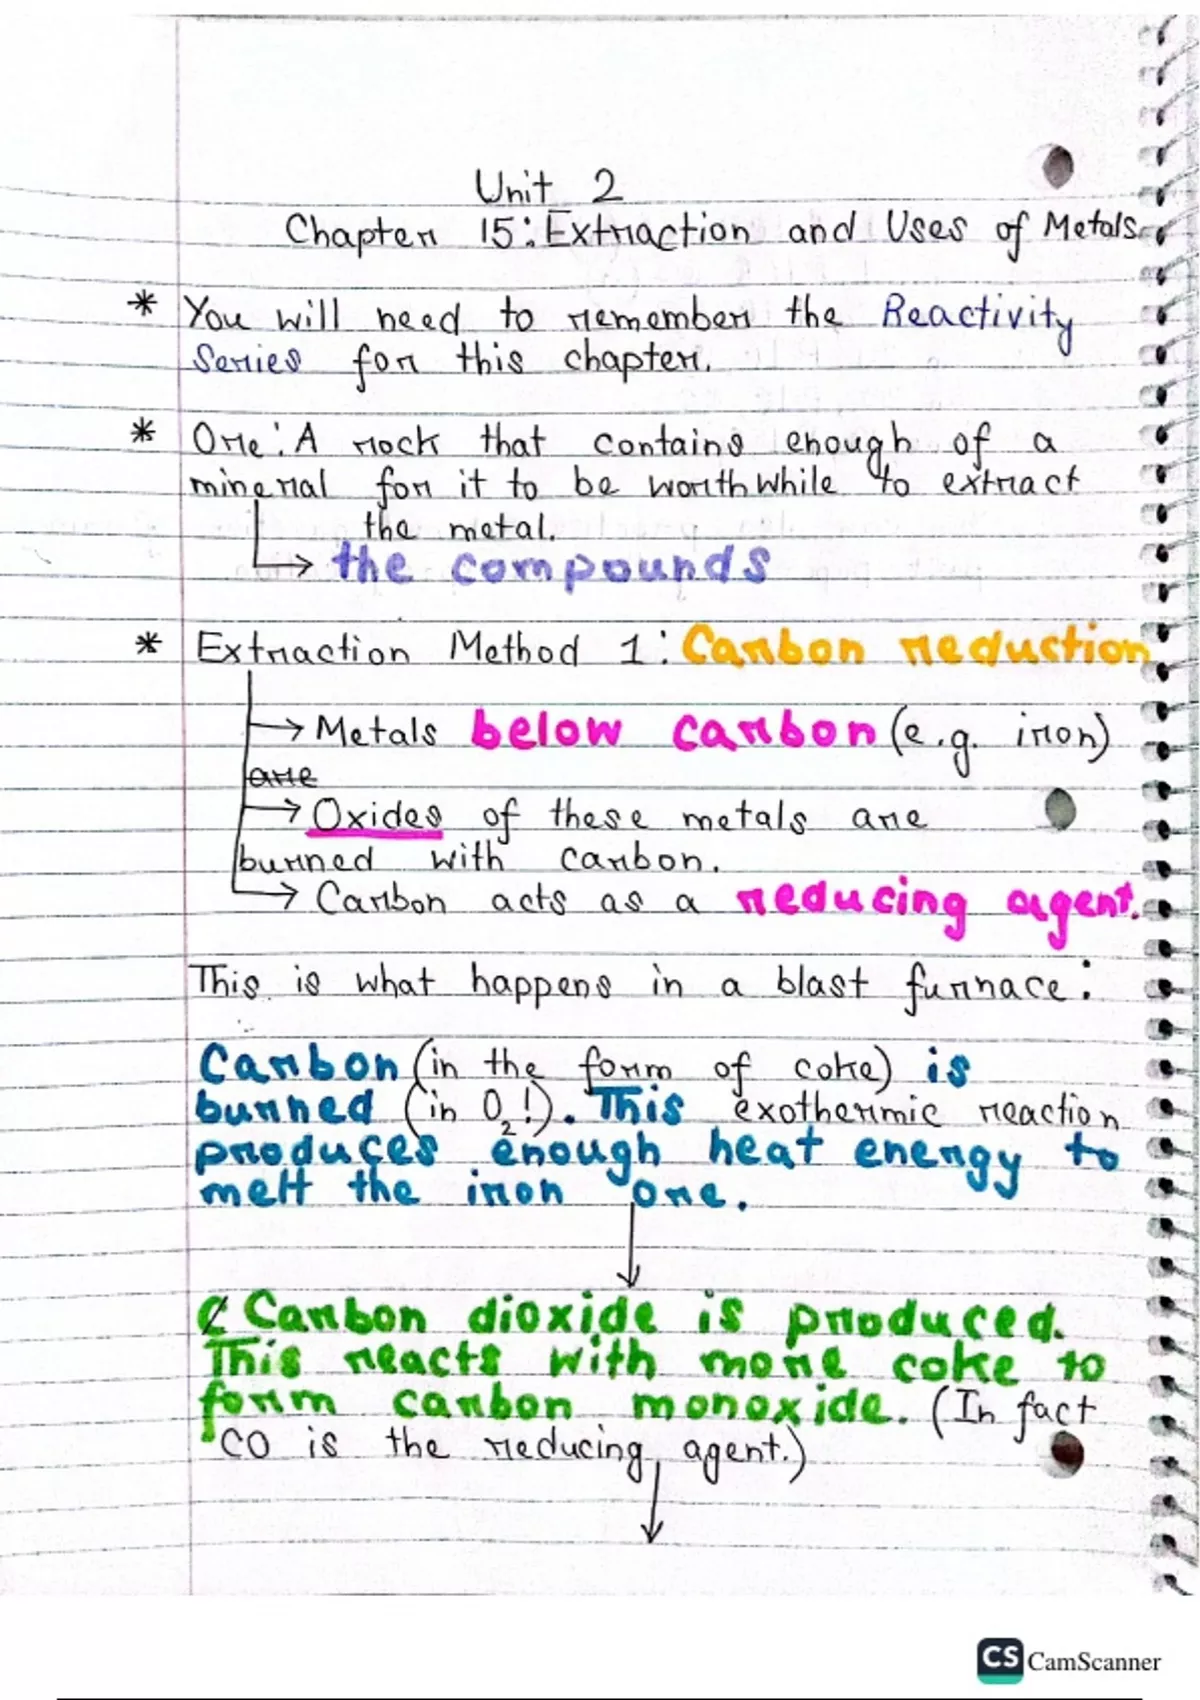 Unit 2
Chapter 15: Extraction and Uses of Metals
* You will need to remember the Reactivity
Series for this chapter.
* Ore: A rock that contains enough of a
mineral for it to be worthwhile to extract
the metal.
→ the compounds
* Extraction Method 1: Carbon reduction
→ Metals below carbon (e.g. iron)
are
→ Oxides of these metals are
burned with carbon.
→ Carbon acts as a reducing agent.
This is what happens in a blast furnace:
Carbon (in the form of coke) is
burned (in O₂!). This exothermic reaction
produces enough heat energy to
melt the iron ore.
Carbon dioxide is produced.
This reacts with more coke to
form carbon monoxide. (In fact
CO is the reducing agent.)
CS CamScanner